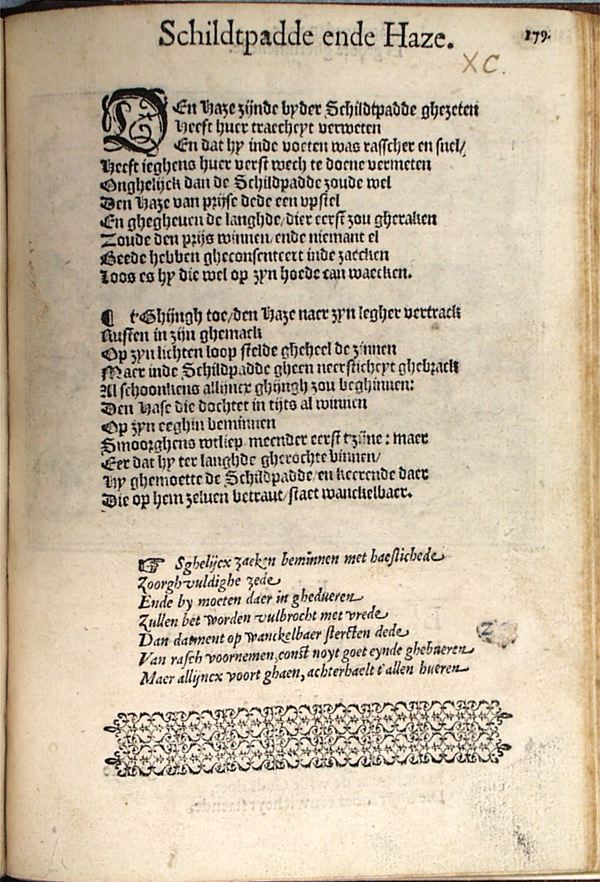 Schildtpadde ende Haze.
179.
XC.
DEn Haze zijnde byder Schildtpadde ghezeten
Heeft huer traecheyt verweten
En dat hy inde voeten was rasscher en snel/
Heeft ieghens huer verst wech te doene vermeten
Onghelijck dan de Schildpadde zoude wel
Den Haze van prijse dede een upstel
En ghegheven de langhde/dier eerst zou gheraken
Zoude den prijs winnen/ende niemant el
Beede hebben gheconsenteert inde zaecken
Loos es hy die wel op zyn hoede can waecken.
¶ t'Ghijngh toe/den Haze naer zyn legher vertrack
Rusten in zijn ghemack
Op zyn lichten loop stelde gheheel de zinnen
Maer inde Schildpadde gheen neersticheyt ghebrack
Al schoonkens allijncx ghijngh zou beghinnen:
Den Hase die dochtet in tijts al winnen
Op zyn eeghin beminnen
Smoorghens wtliep meender eerst t'zijne: maer
Eer dat hy ter langhde gherochte binnen/
Hy ghemoette de Schildpadde/en keerende daer
Die op hem zelven betraut/staet wanckelbaer.
☞ Sghelijcx zaeken beminnen met haestichede
Zoorghvuldighe zede
Ende by moeten daer in ghedueren
Zullen bet worden vulbrocht met vrede
Dan datment op wanckelbaer sterckten dede
Van rasch voornemen, const noyt goet eynde ghebueren
Maer allijncx voort ghaen, achterhaelt t'allen hueren